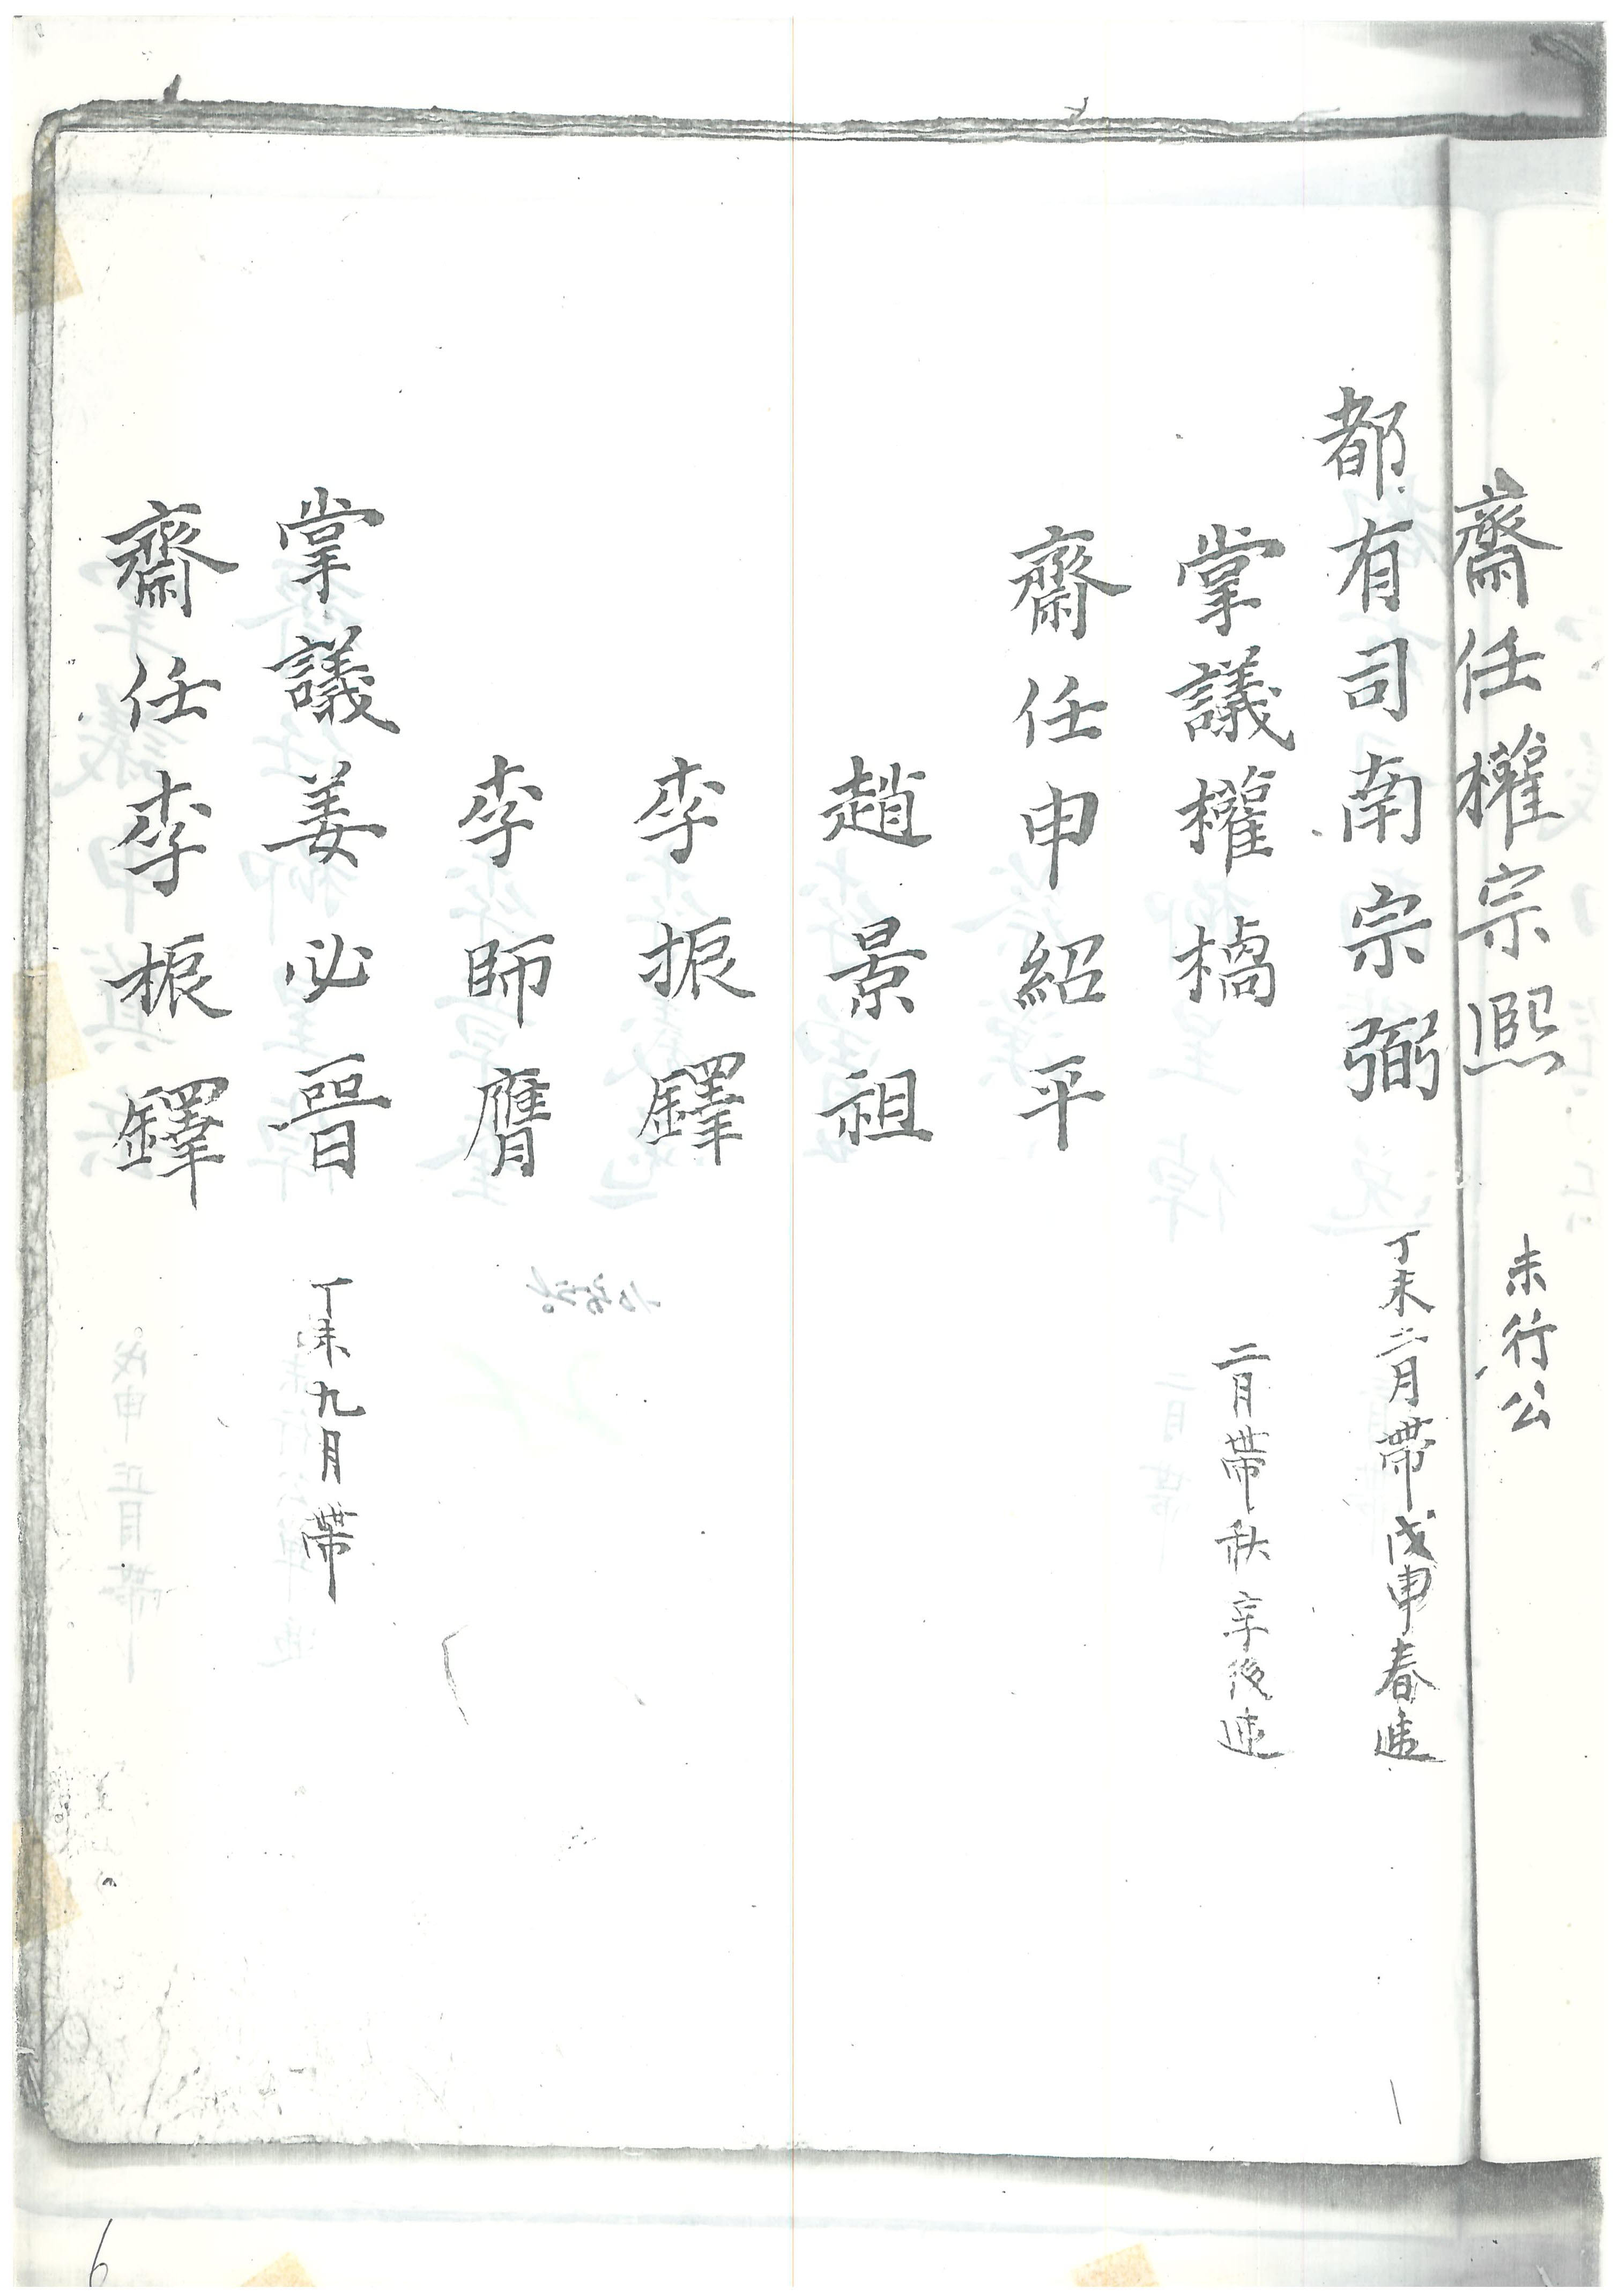 齋任權宗熙 未行公
都有司南宗弼 丁未二月帶戊申春遞
掌議權檎 二月帶秋享後遞
齋任申紹平
趙景祖
李振鐸
李師膺
掌議姜必晉 丁未九月帶
齋任李振鐸
6